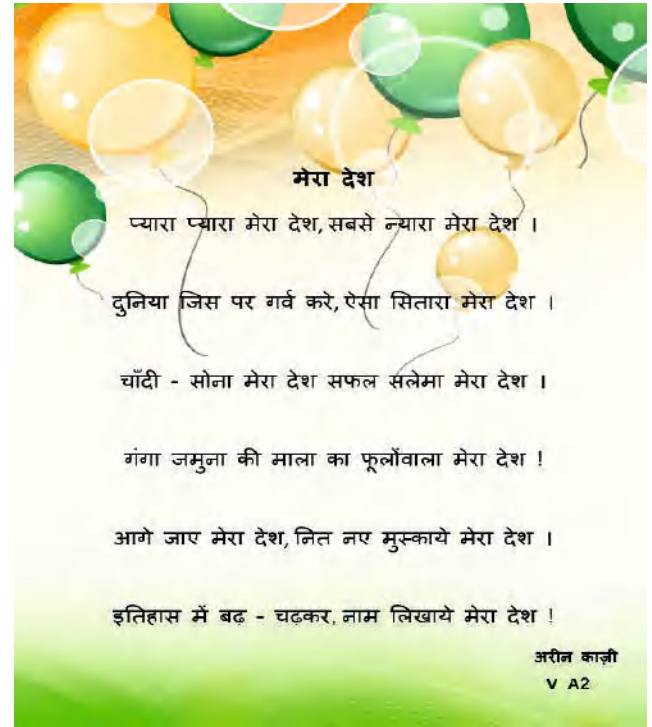 मेरा देश
प्यारा प्यारा मेरा देश, सबसे न्यारा मेरा देश ।
दुनिया जिस पर गर्व करे, ऐसा सितारा मेरा देश ।
चाँदी - सोना मेरा देश सफल सलेमा मेरा देश ।
गंगा जमुना की माला का फूलोंवाला मेरा देश !
आगे जाए मेरा देश, नित नए मुस्काये मेरा देश ।
इतिहास में बढ़ - चढ़कर, नाम लिखाये मेरा देश !
अरीन काज़ी
V A2